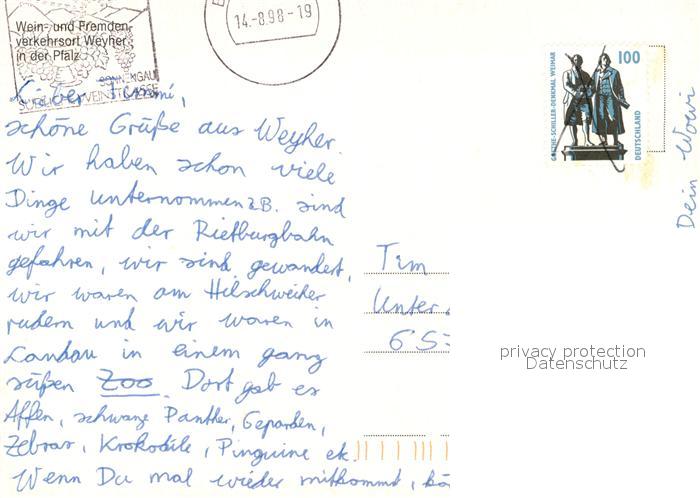 Wein- und Fremden-
verkehrsort Weyher
in der Pfalz
14.-8.98-19
100
GOETHE-SCHILLER-DENKMAL WEIMAR
DEUTSCHLAND
Lieber Timmi,
schöne Grüße aus Weyher.
Wir haben schon viele
Dinge unternommen z.B. sind
wir mit der Rietburgbahn
gefahren, wir sind gewandert,
wir waren am Hilschweiher
rudern und wir waren in
Landau in einem ganz
süßen Zoo. Dort gab es
Affen, schwarze Panther, Geparden,
Zebras, Krokodile, Pinguine etc.
Wenn Du mal wieder mitkommst, kö
Dein Wowi
Tim
Unter
65
privacy protection
Datenschutz